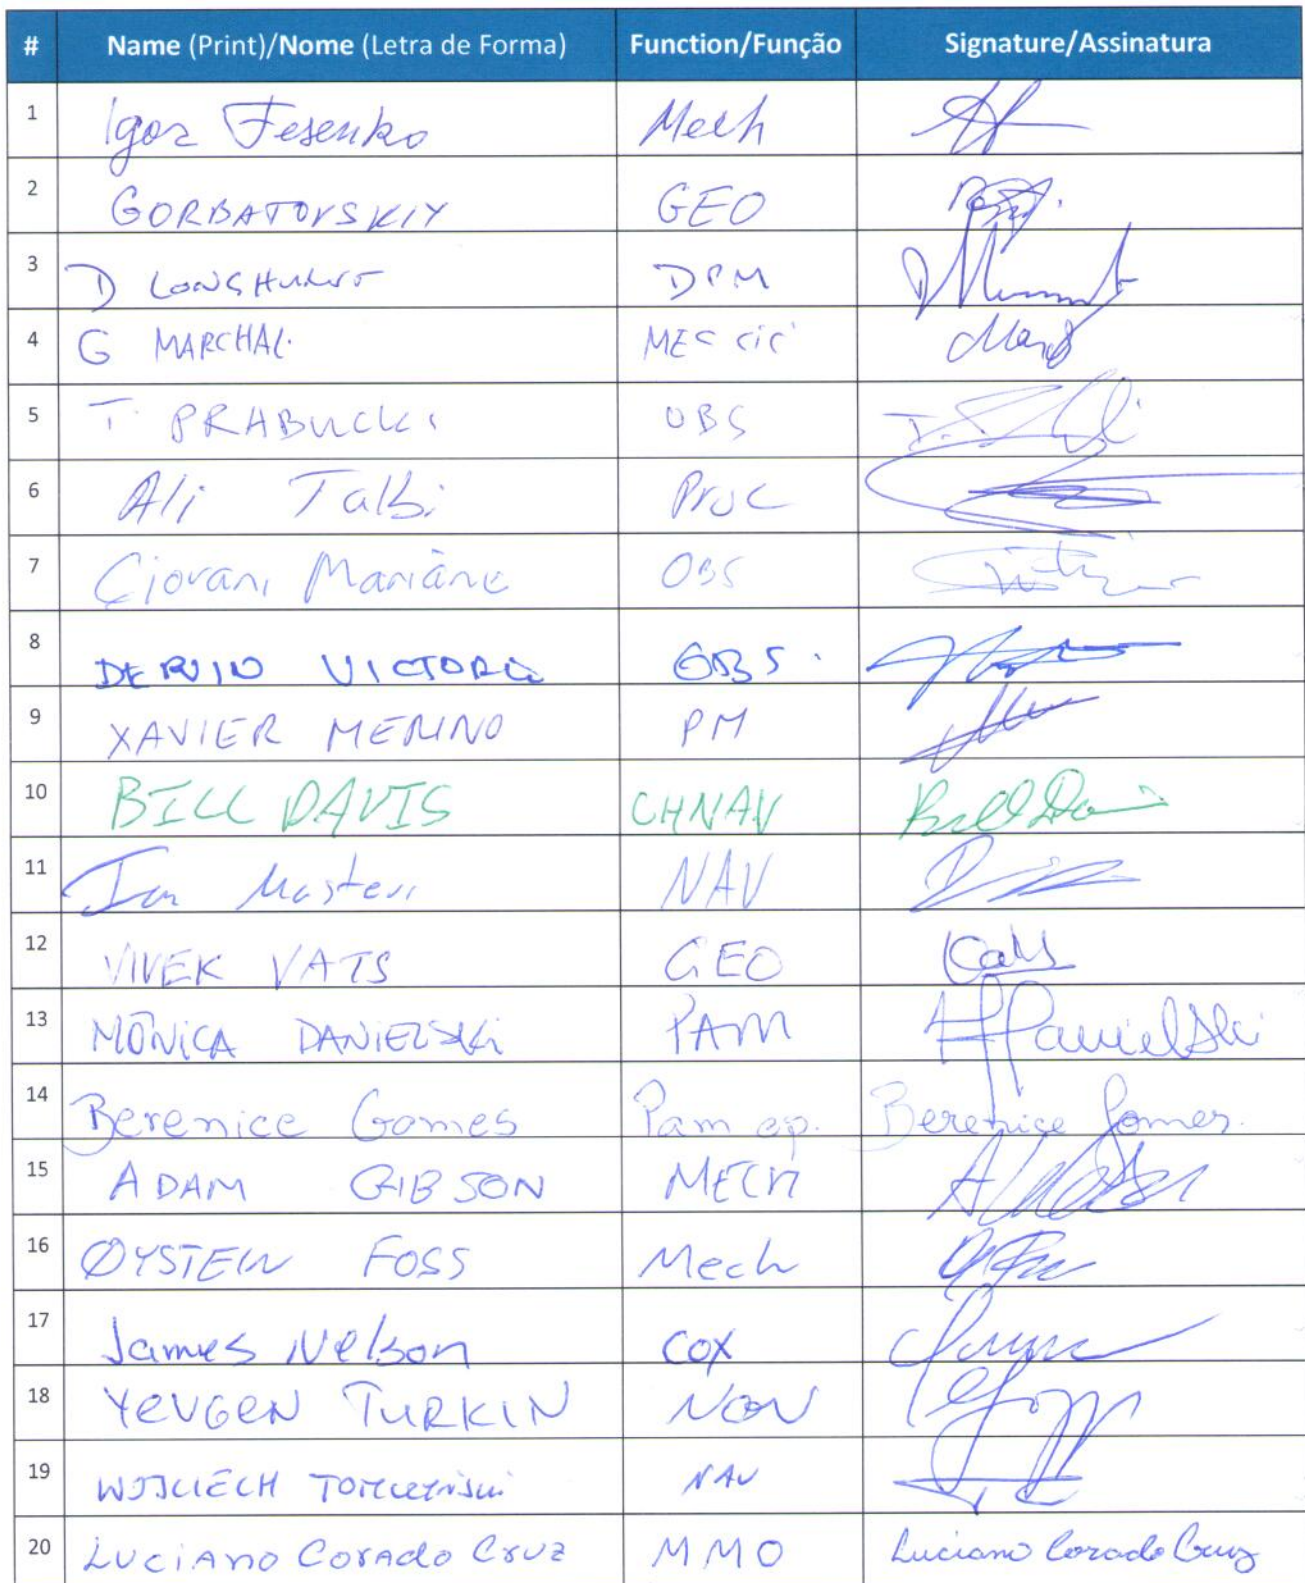 # Name (Print)/Nome (Letra de Forma) Function/Função Signature/Assinatura
1 Igor Fesenko Mech
2 GORBATOVSKIY GEO
3 D LONGHURST DPM
4 G MARCHAL MEC
5 T. PRABUCKI OBS
6 Ali Talbi Proc
7 Giovani Mariâno OBS
8 VICTORIO OBS.
9 XAVIER MERINO PM
10 BILL DAVIS CHNAV Bill Davis
11 Ian Masters NAV
12 VIVEK VATS GEO
13 MÔNICA DANIELSKI PAM Danielski
14 Berenice Gomes Pam op. Berenice Gomes.
15 ADAM GIBSON MECH
16 ØYSTEIN FOSS Mech
17 James Nelson COX
18 YEVGEN TURKIN NAV
19 WOJCIECH NAV
20 LUCIANO CORADO CRUZ MMO Luciano Corado Cruz